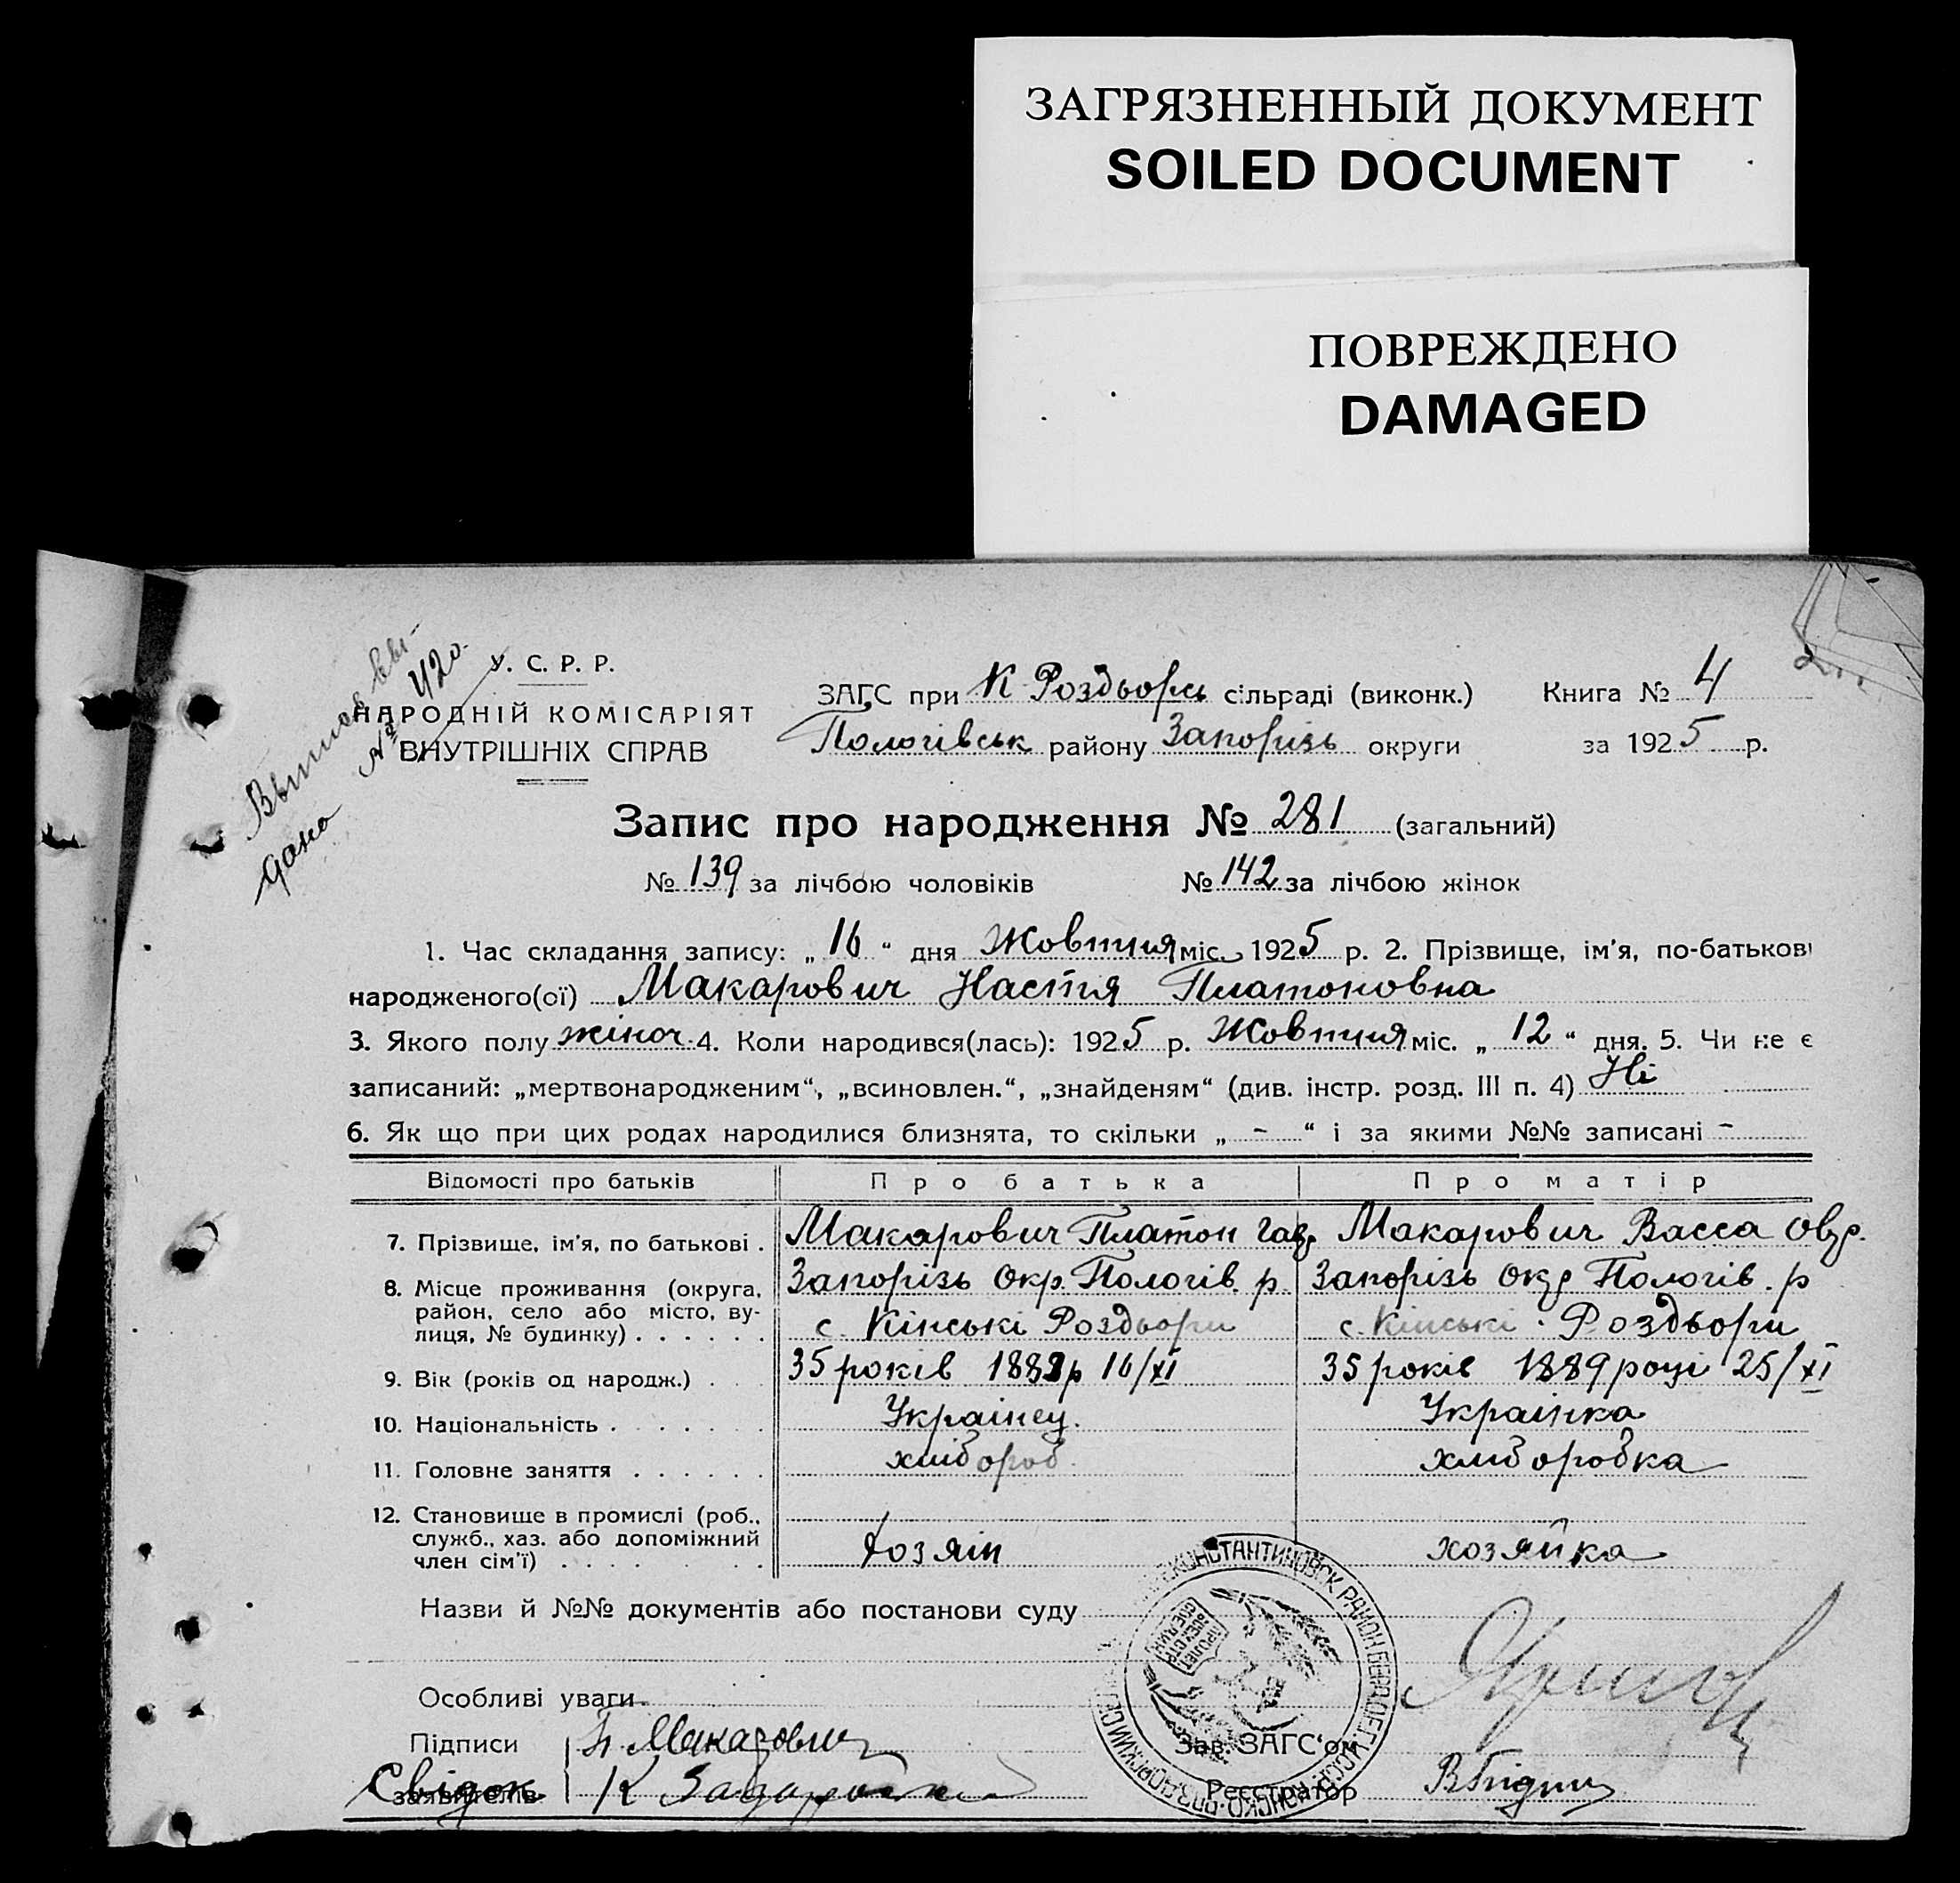 ЗАГРЯЗНЕННЫЙ ДОКУМЕНТ
SOILED DOCUMENT
ПОВРЕЖДЕНО
DAMAGED
дано № 420
У. С. Р. Р.
НАРОДНІЙ КОМІСАРІЯТ
ВНУТРІШНІХ СПРАВ
ЗАГС при К Роздорсь сільраді (виконк.) Книга № 4
Пологівськ району Запорізь округи за 1925 р.
Запис про народження № 281 (загальний)
№ 139 за лічбою чоловіків № 142 за лічбою жінок
1. Час складання запису: „ 16 “ дня Жовтня міс. 1925 р. 2. Прізвище, ім'я, по-батькові
народженого(ої) Макарович Настя Платоновна
3. Якого полу жіноч. 4. Коли народився(лась): 1925 р. Жовтня міс. „ 12 “ дня. 5. Чи не є
записаний: „мертвонародженим“, „всиновлен.“, „знайденям“ (див. інстр. розд. III п. 4) Ні
6. Як що при цих родах народилися близнята, то скільки „ - “ і за якими №№ записані -
Відомості про батьків Про батька Про матір
7. Прізвище, ім'я, по батькові . Макарович Платон Макарович Васса
8. Місце проживання (округа, район, село або місто, вулиця, № будинку) . . . . . . Запорізь Окр. Пологів. р. Запорізь Окр Пологів. р
с. Кінські Роздори с. Кінські Роздори
9. Вік (років од народж.) . . . 35 років 1889р 16/XI 35 років 1889 році 25/XI
10. Національність . . . . . . . Українец. Українка
11. Головне заняття . . . . . . хлібороб. хліборобка
12. Становище в промислі (роб., служб., хаз. або допоміжний член сім'ї) . . . . . . Хозяін хозяйка
Назви й №№ документів або постанови суду
Особливі уваги
Підписи П Макарович Зав. ЗАГС'ом
Свідок
заявителів К Реєстратор